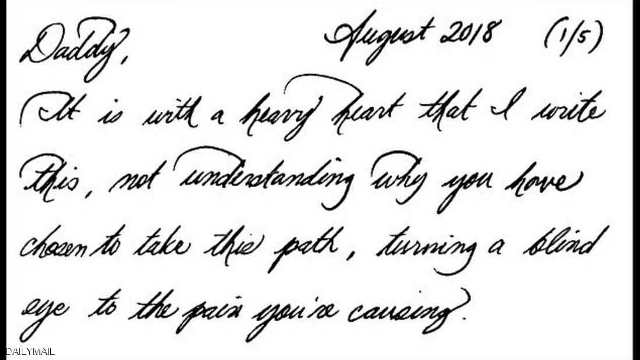 Daddy, August 2018 (1/5)
It is with a heavy heart that I write
this, not understanding why you have
chosen to take this path, turning a blind
eye to the pain you're causing.
DAILYMAIL